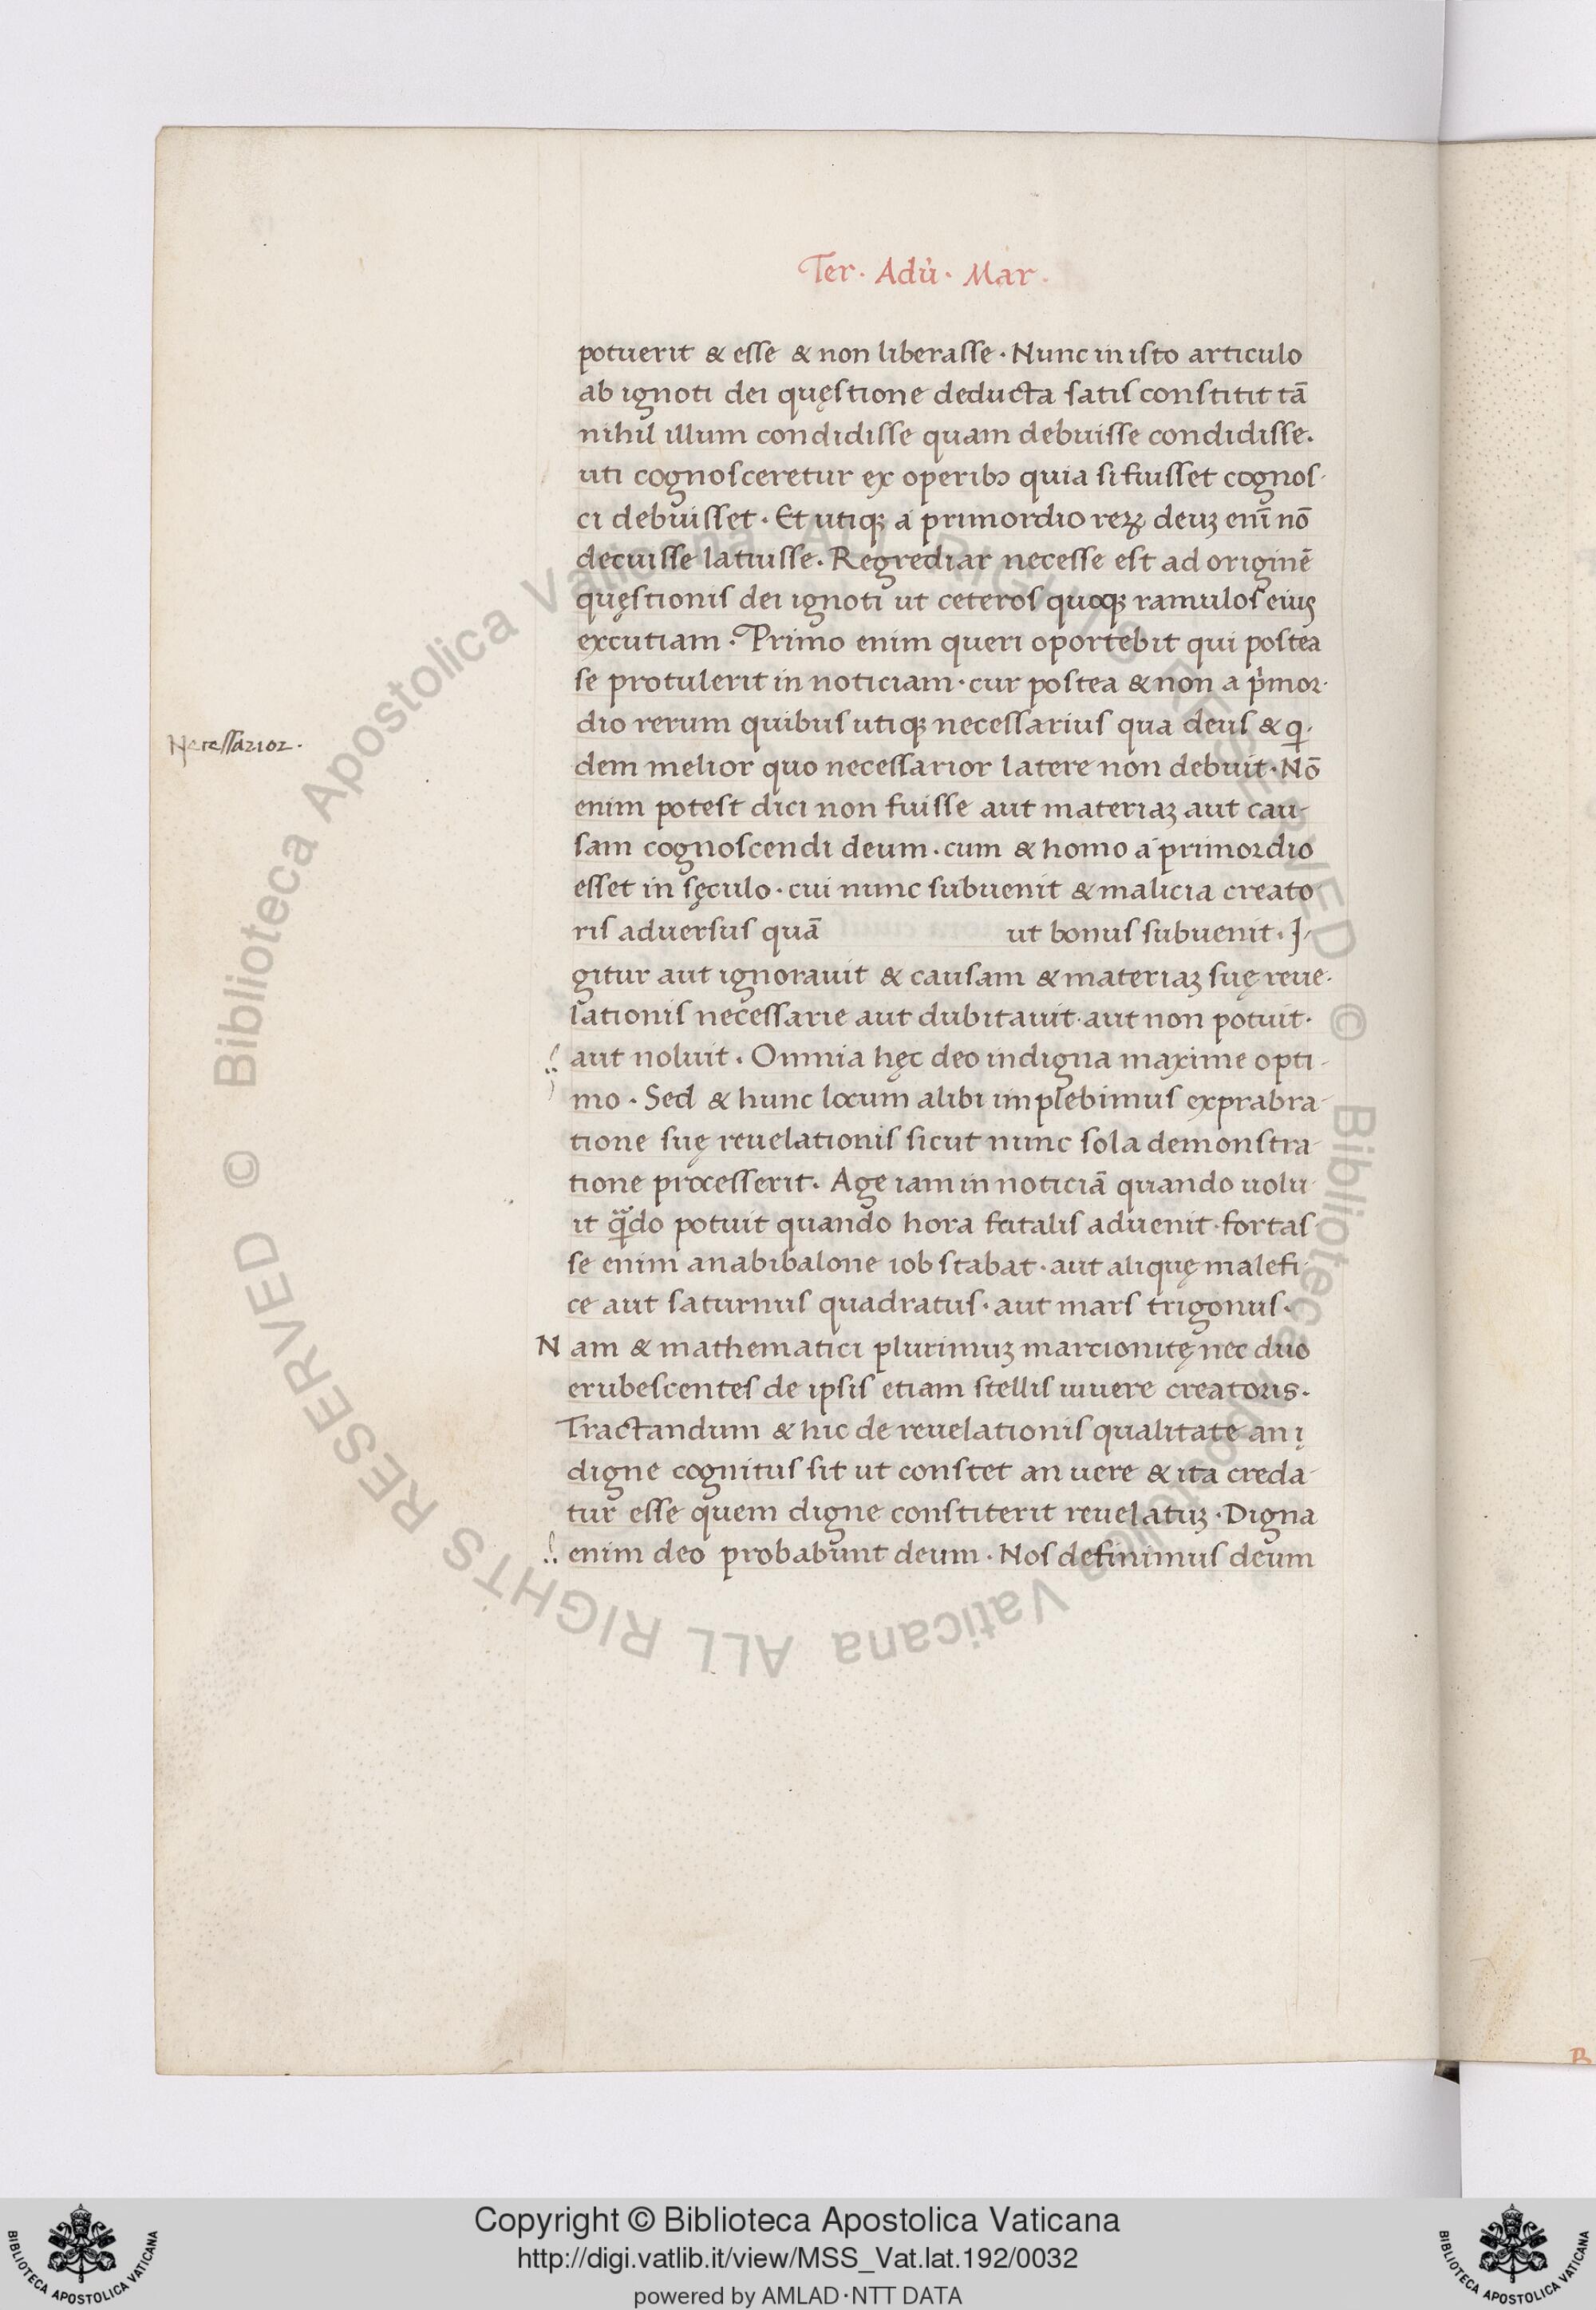 Ter · Adū · Mar ·
potuerit & esse & non liberasse · Nunc in isto articulo
ab ignoti dei quęstione deducta satis constitit tā
nihil illum condidisse quam debuisse condidisse ·
uti cognosceretur ex operibꝫ quia si fuisset cognos-
ci debuisset · Et utiqꝫ a primordio reꝝ deuꝫ enī nō
decuisse latuisse · Regrediar necesse est ad originē
quęstionis dei ignoti ut ceteros quoqꝫ ramulos eiuꝫ
excutiam · Primo enim queri oportebit qui postea
se protulerit in noticiam · cur postea & non a p̍mor-
dio rerum quibus utiqꝫ necessarius qua deus & q̍-
Necessarior ·
dem melior quo necessarior latere non debuit · Nō
enim potest dici non fuisse aut materiaꝫ aut cau-
sam cognoscendi deum · cum & homo a primordio
esset in sęculo · cui nunc subuenit & malicia creato-
ris adversus quā ut bonus subuenit · I-
gitur aut ignoravit & causam & materiaꝫ suę reve-
lationis necessarie aut dubitavit · aut non potuit ·
aut noluit · Omnia hęc deo indigna maxime opti-
mo · Sed & hunc locum alibi implebimus exprabra-
tione suę revelationis sicut nunc sola demonstra-
tione processerit · Age iam in noticiā quando uolu-
it qᷓdo potuit quando hora fatalis advenit · fortas-
se enim anabibalone iob stabat · aut aliquę malefi-
ce aut saturnus quadratus · aut mars trigonus ·
Nam & mathematici plurimuꝫ marcionitę nec duo
erubescentes de ipsis etiam stellis uiuere creatoris ·
Tractandum & hic de revelationis qualitate an i
digne cognitus sit ut constet an uere & ita creda-
tur esse quem digne constiterit revelatuꝫ · Digna
enim deo probabunt deum · Nos definimus deum
B
Copyright © Biblioteca Apostolica Vaticana
http://digi.vatlib.it/view/MSS_Vat.lat.192/0032
powered by AMLAD·NTT DATA
BIBLIOTECA APOSTOLICA VATICANA
BIBLIOTECA APOSTOLICA VATICANA
© Biblioteca Apostolica Vaticana ALL RIGHTS RESERVED © Biblioteca Apostolica Vaticana ALL RIGHTS RESERVED